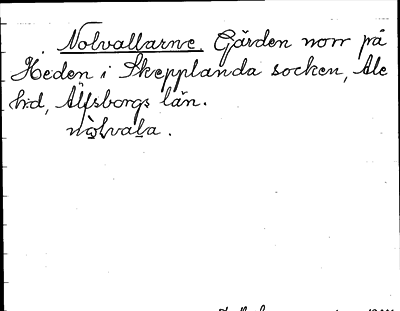 Nolvallarne. Gården norr på
Heden i Skepplanda socken, Ale
hd, Älfsborgs län.
nòlvala.